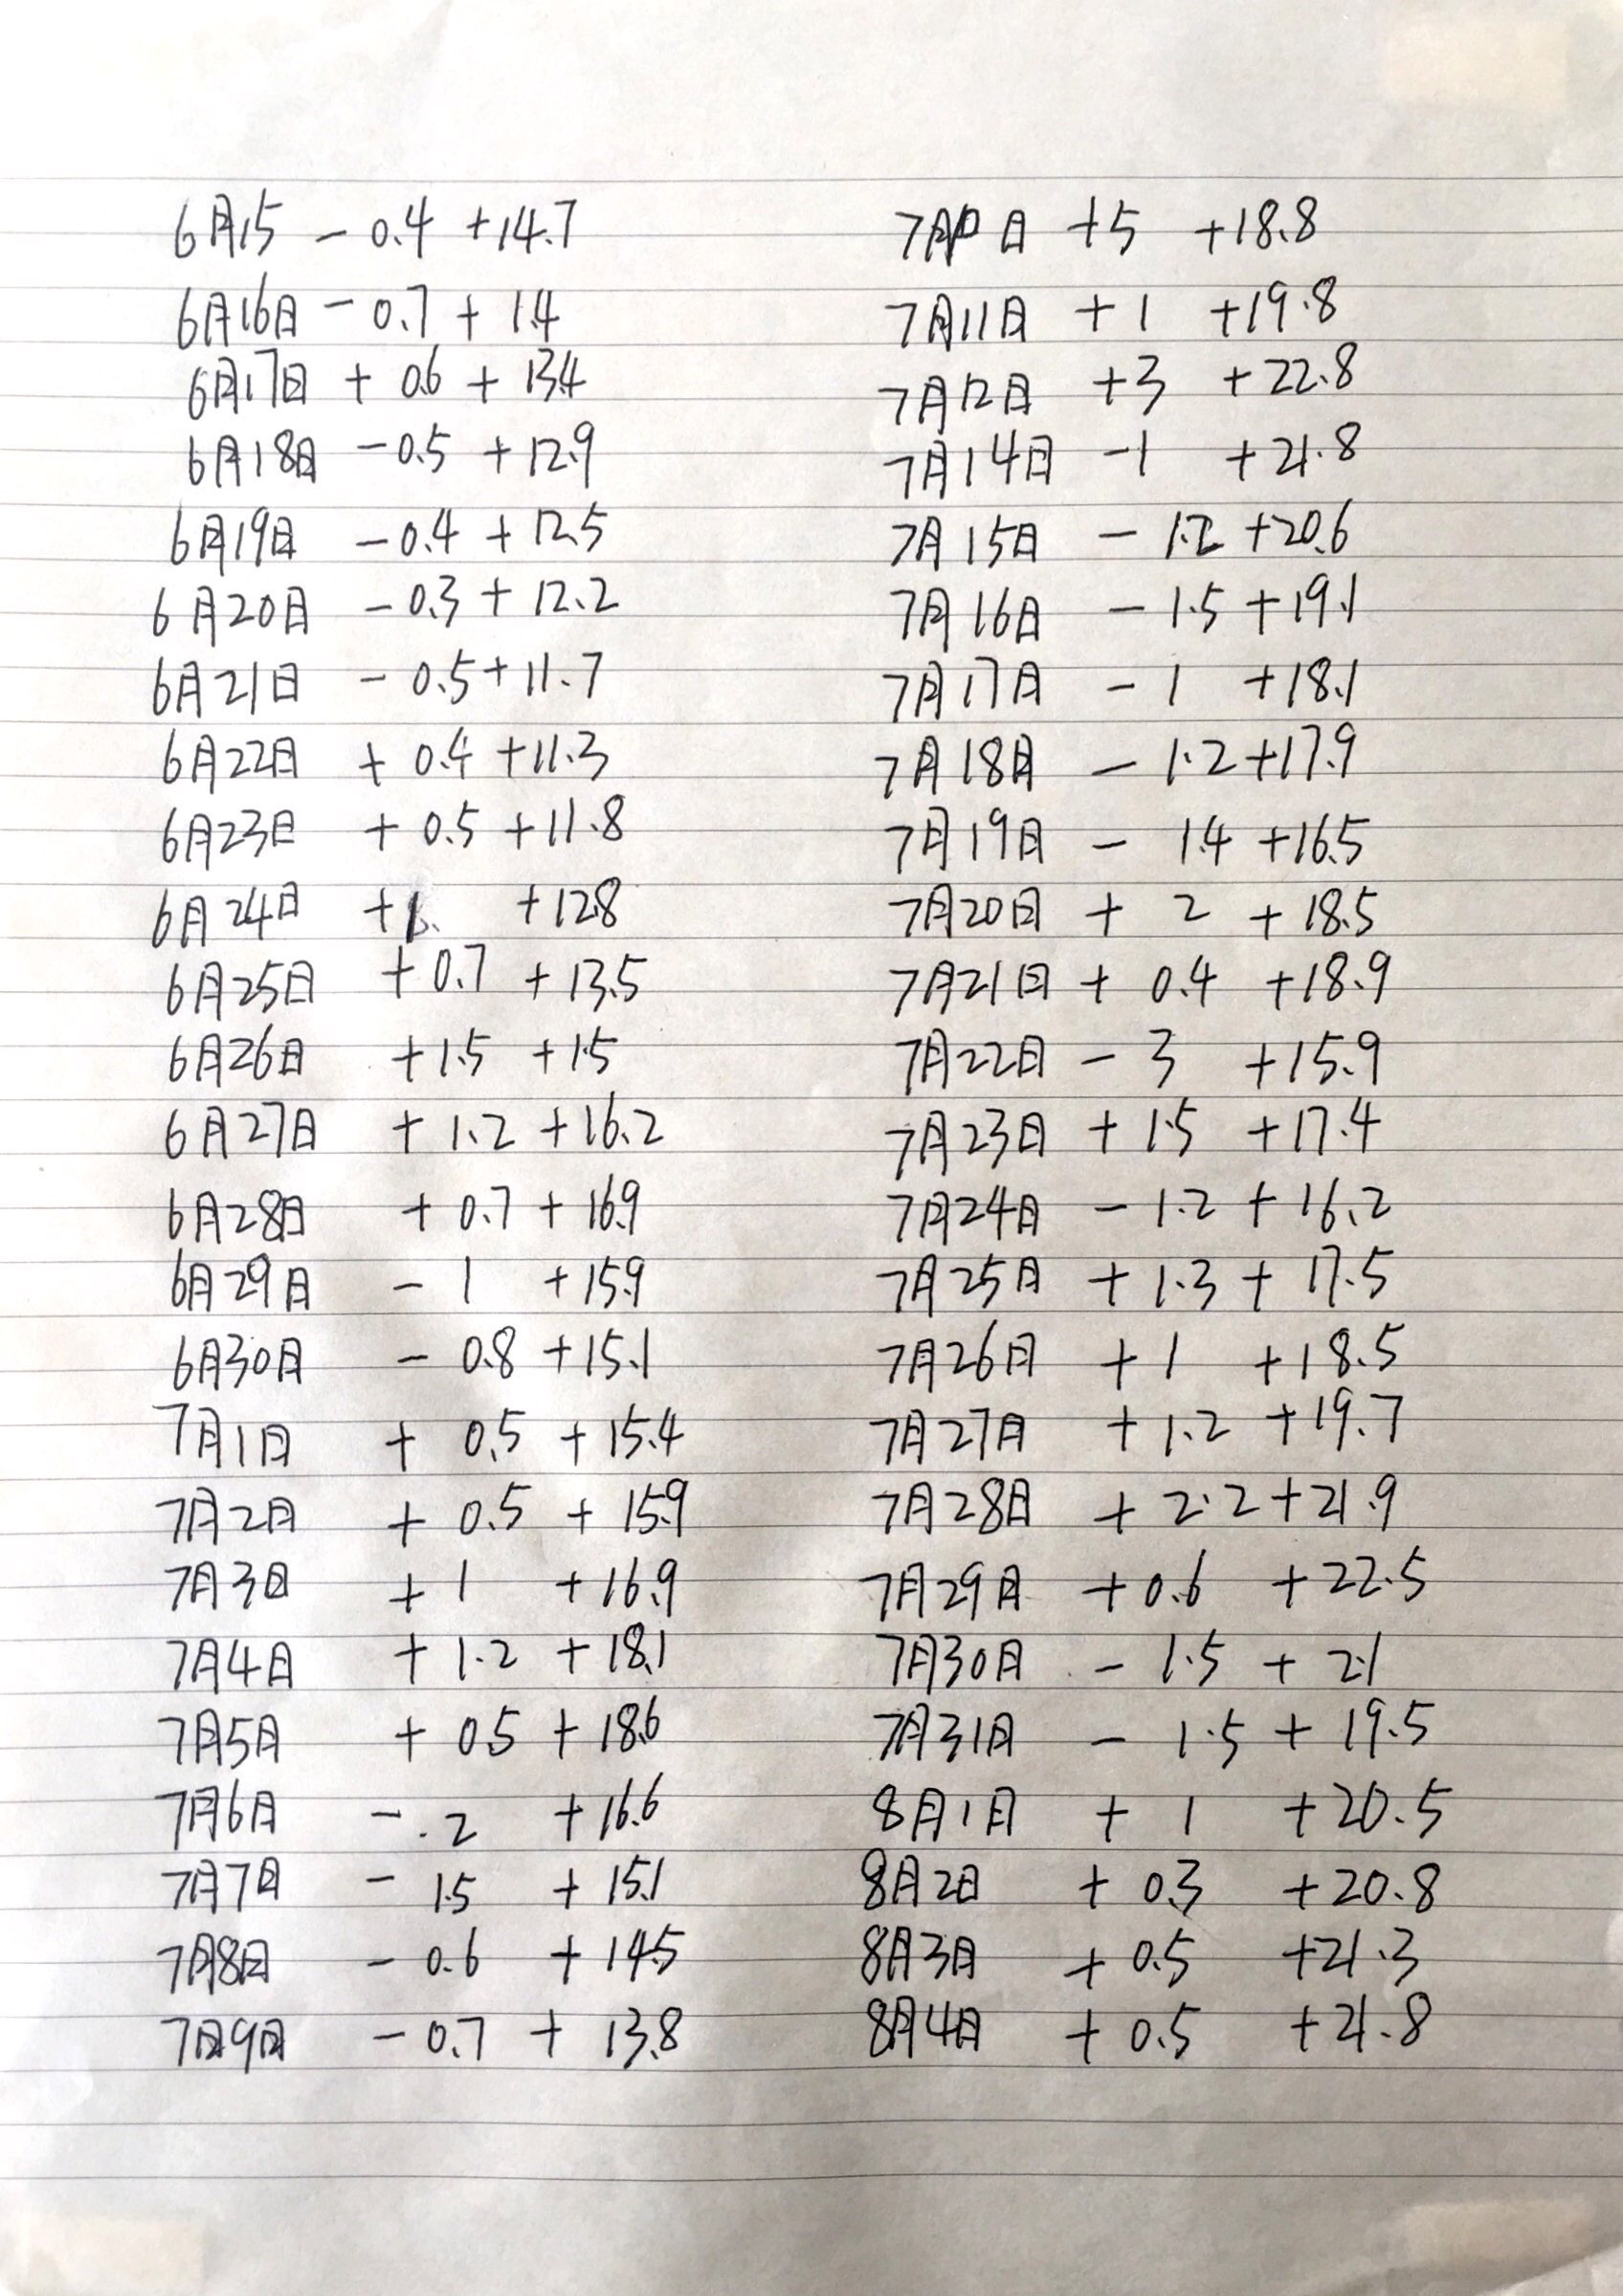 6月15 - 0.4 +14.7
6月16日 - 0.7 + 14
6月17日 + 0.6 + 13.4
6月18日 - 0.5 +12.9
6月19日 - 0.4 + 12.5
6月20日 - 0.3 + 12.2
6月21日 - 0.5 + 11.7
6月22日 + 0.4 +11.3
6月23日 + 0.5 +11.8
6月24日 +1. +12.8
6月25日 +0.7 +13.5
6月26日 +1.5 +15
6月27日 + 1.2 +16.2
6月28日 + 0.7 + 16.9
6月29日 - 1 +15.9
6月30日 - 0.8 +15.1
7月1日 + 0.5 +15.4
7月2日 + 0.5 + 15.9
7月3日 + 1 +16.9
7月4日 + 1.2 + 18.1
7月5日 + 0.5 + 18.6
7月6日 - .2 +16.6
7月7日 - 1.5 + 15.1
7月8日 - 0.6 + 14.5
7月9日 - 0.7 + 13.8
7月10日 +5 +18.8
7月11日 + 1 +19.8
7月12日 +3 +22.8
7月14日 -1 +21.8
7月15日 - 1.2 +20.6
7月16日 - 1.5 +19.1
7月17日 - 1 +18.1
7月18日 - 1.2 +17.9
7月19日 - 1.4 +16.5
7月20日 + 2 + 18.5
7月21日 + 0.4 +18.9
7月22日 - 3 +15.9
7月23日 + 1.5 +17.4
7月24日 - 1.2 + 16.2
7月25日 + 1.3 + 17.5
7月26日 + 1 +18.5
7月27日 + 1.2 +19.7
7月28日 + 2.2 +21.9
7月29日 +0.6 +22.5
7月30日 - 1.5 + 21
7月31日 - 1.5 + 19.5
8月1日 + 1 +20.5
8月2日 + 0.3 +20.8
8月3日 + 0.5 +21.3
8月4日 + 0.5 +21.8